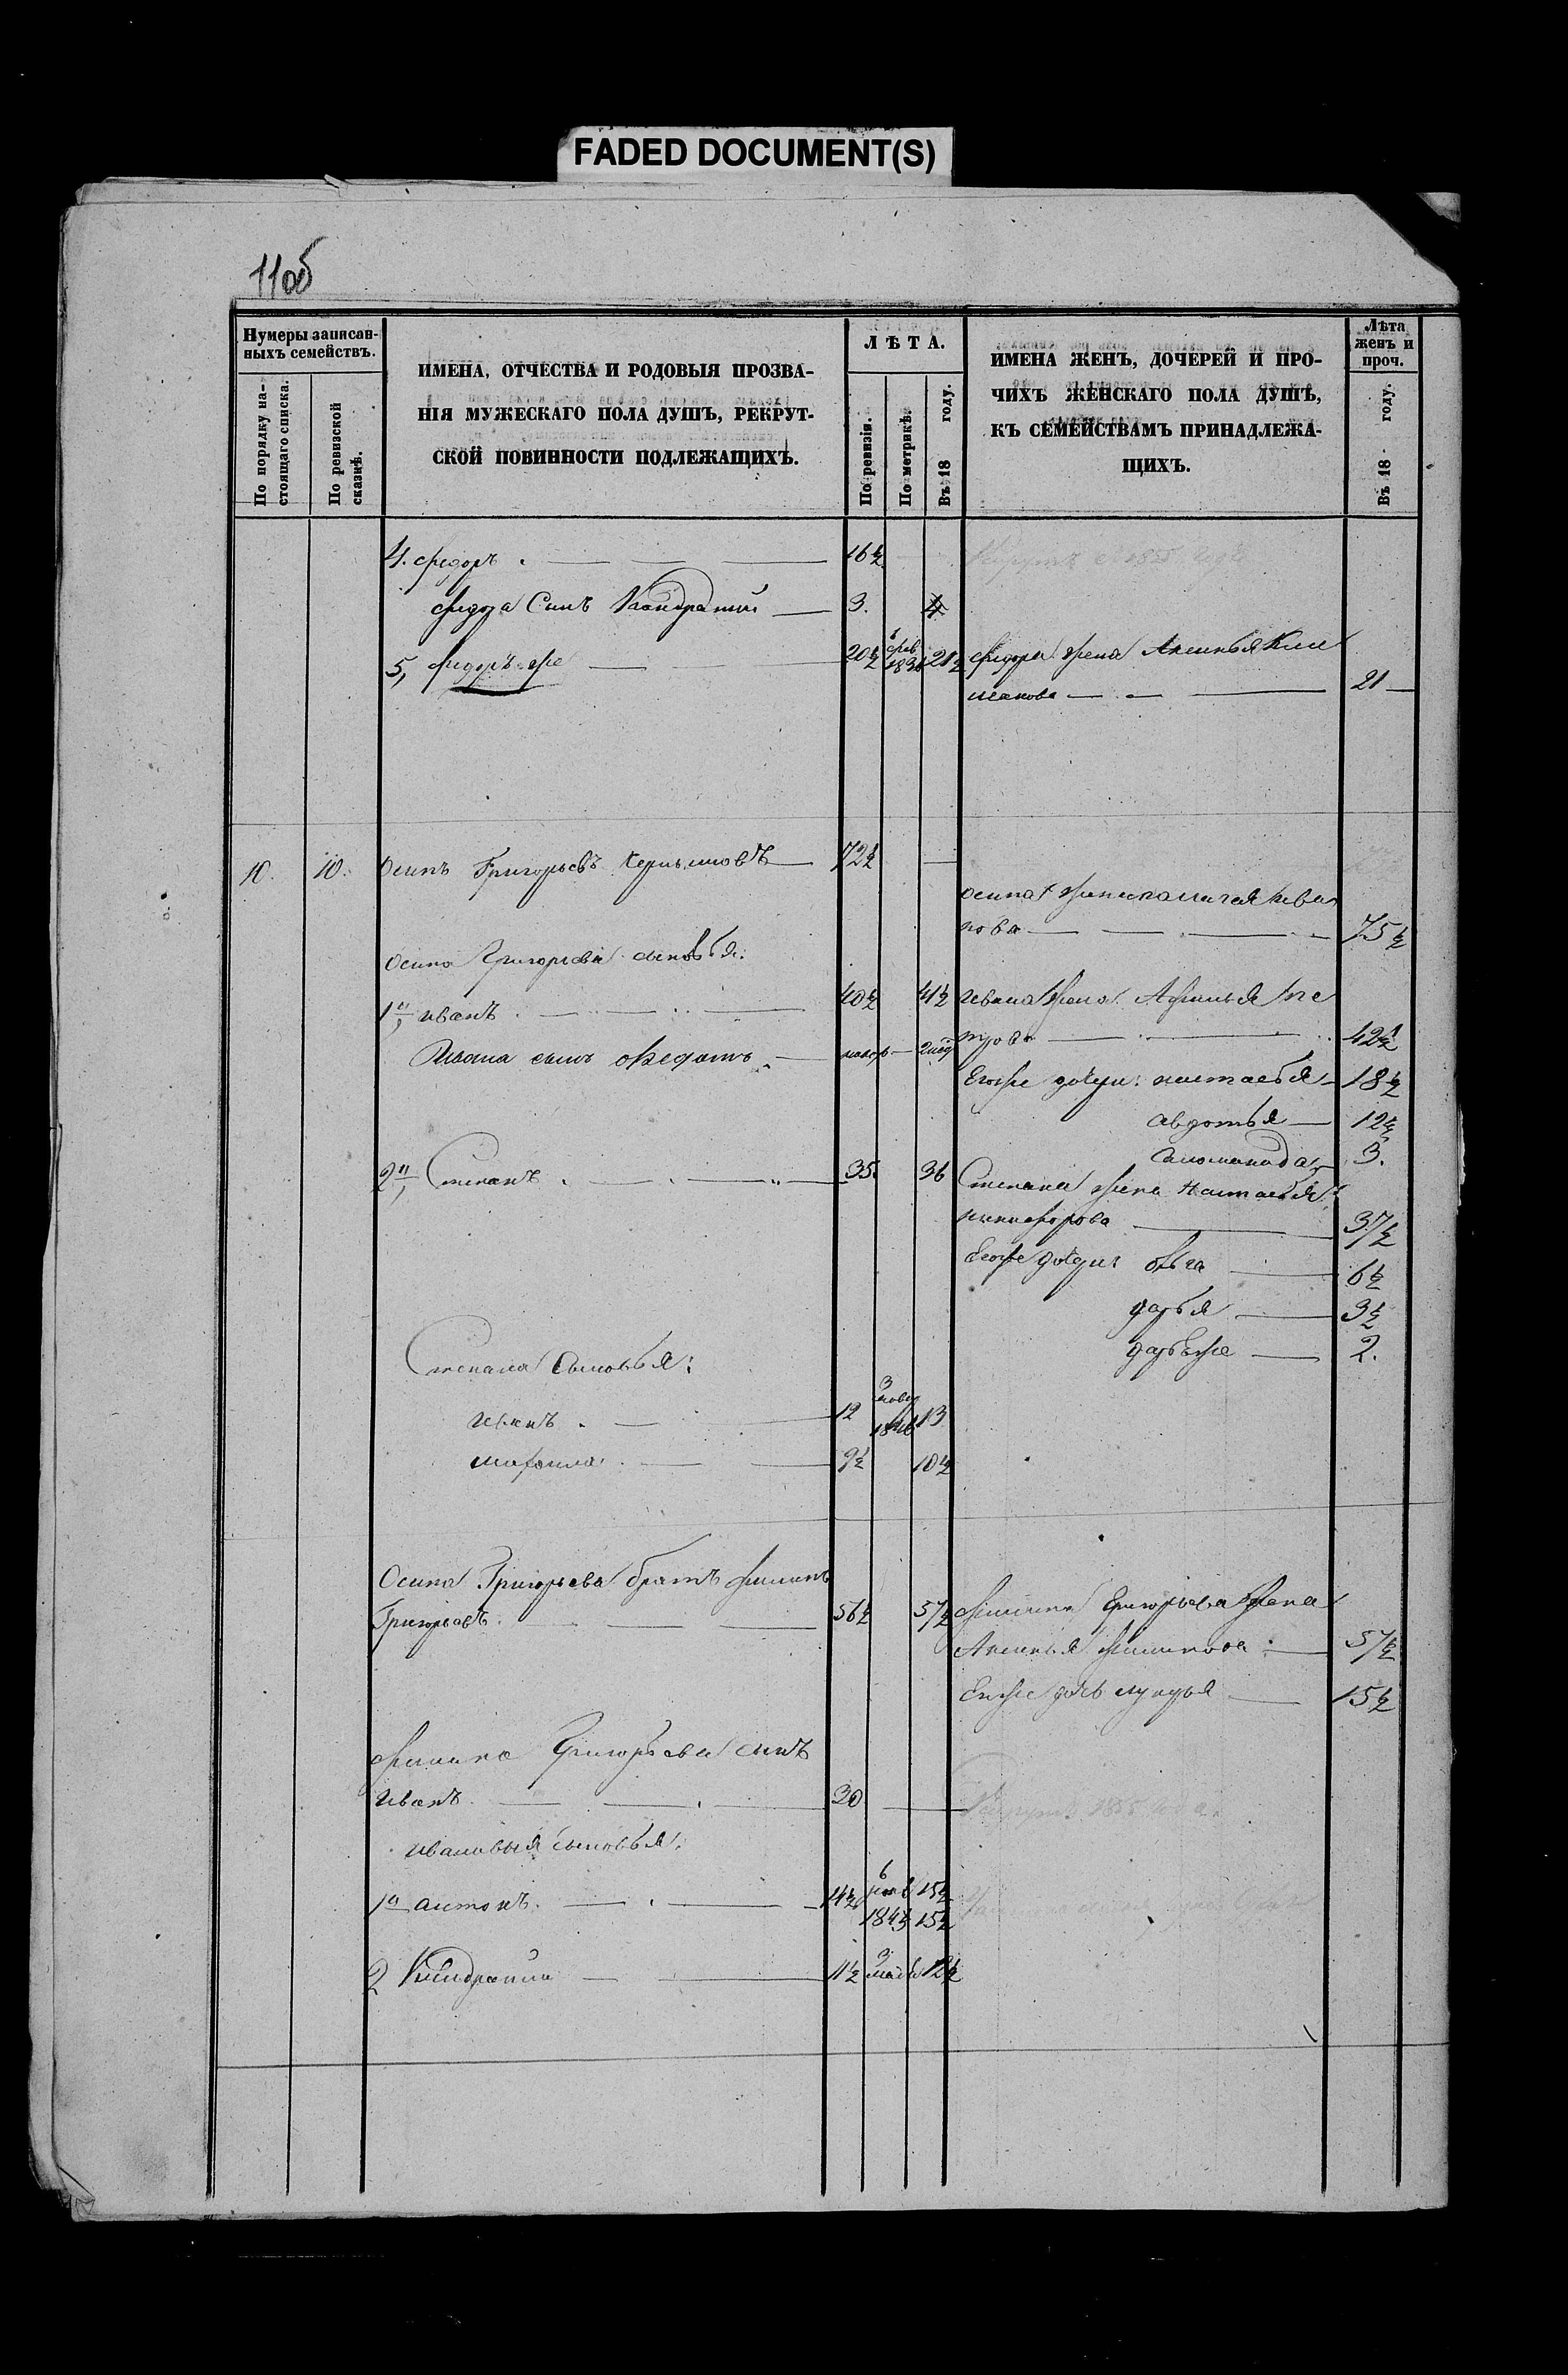 FADED DOCUMENT(S)
110б
Нумеры записан-
ныхъ семействъ.
По порядку на-
стоящаго списка.
По ревизской
сказкѣ.
ИМЕНА, ОТЧЕСТВА И РОДОВЫЯ ПРОЗВА-
НІЯ МУЖЕСКАГО ПОЛА ДУШЪ, РЕКРУТ-
СКОЙ ПОВИННОСТИ ПОДЛЕЖАЩИХЪ.
ЛѢТА.
По ревизіи.
По метрикѣ.
Въ 18 году.
ИМЕНА ЖЕНЪ, ДОЧЕРЕЙ И ПРО-
ЧИХЪ ЖЕНСКАГО ПОЛА ДУШЪ,
КЪ СЕМЕЙСТВАМЪ ПРИНАДЛЕЖА-
ЩИХЪ.
Лѣта
женъ и
проч.
Въ 18 году.
4. федоръ 16½
федора Сынъ Кондратий 3. 4
5, федоръ же 20½ фев 21½ федора жена Аксинья Кли
макова 21
10. 10. Осипъ Григорьевъ 72½
осипа жена ива
нова 75½
Осипа Григорьева сыновья:
1й, иванъ 40½ 41½ Ивана жена Афимья пе
трова 42½
Ивана сынъ
Егоже дочери: настасья 18½
авдотья 12½
3.
2й, Степанъ 35. 36 Степана жена Настасья
никифорова 37½
Егоже дочери ольга 6½
дарья 3½
дарья же 2.
Степана Сыновья:
иванъ 12 3 13
9½ 10½
Осипа Григорьева братъ филипъ
Григорьевъ 56½ 57½ филипа Григорьева жена
Аксинья филипова 57½
Егоже дочь лукерья 15½
филипа Григорьева сынъ
Иванъ 30
ивановыя сыновья:
1й антонъ 14½ 6 15½
184 15½
2 Кондратий 11½ 3 12½